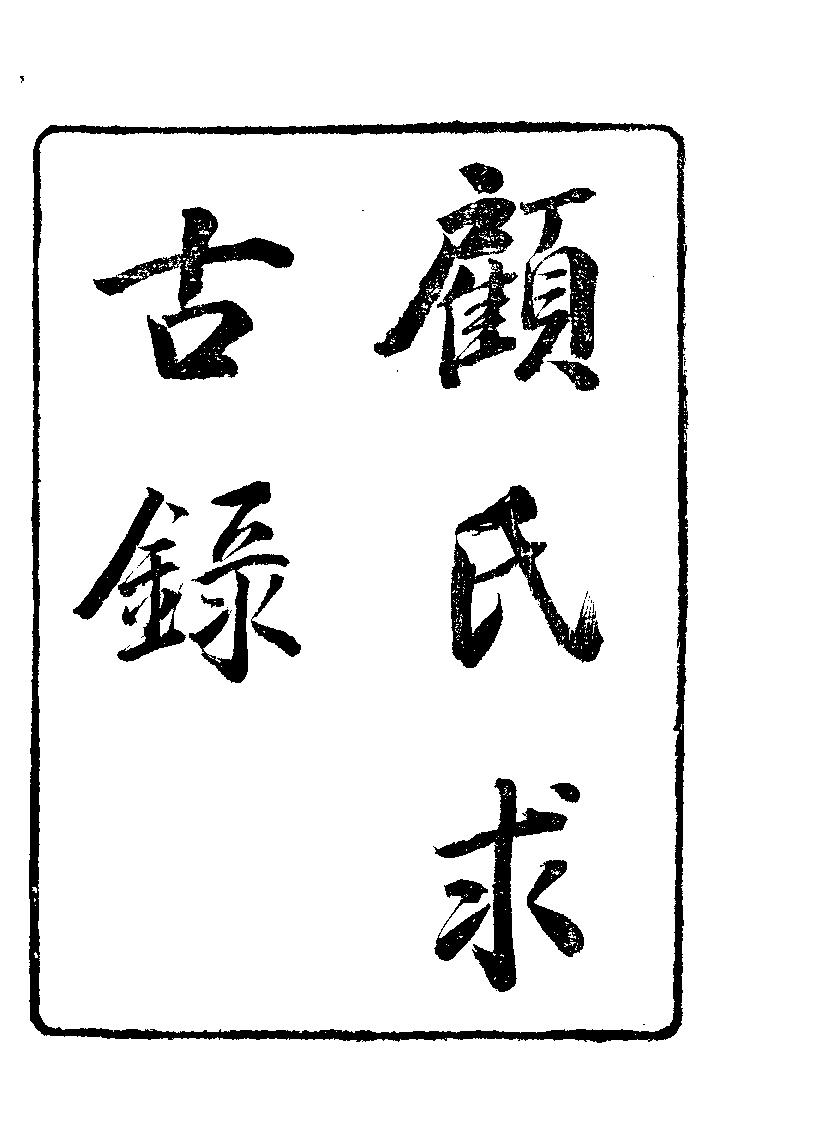 顧氏求
古錄